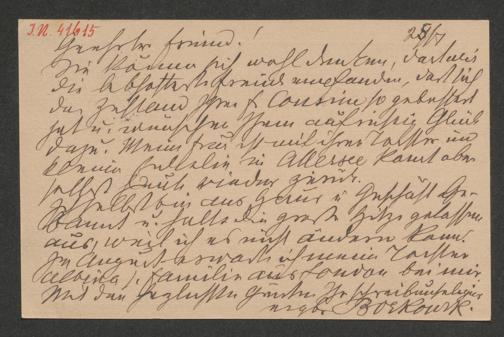 J.N. 41615
28/7
Geehrter Freund!
Sie können sich wohl denken, dass wir
die lebhafteste Freude empfanden, dass sich
der Zustand Ihres Cousin so gebessert
hat u. wünschen Ihnen aufrichtig Glück
dazu. Meine Frau ist mit ihrer Tochter und
kleinen Enkelin in Attersee kommt aber
selbst heute wieder zurück.
Ich selbst bin aus Haus u Geschäft ge-
bannt u. halte die große Hitze gelassen
aus, weil ich es nicht ändern kann.
Im August erwarte ich meine Tochter
Familie aus London bei mir
Mit den herzlichsten Grüßen Ihr
ergbr